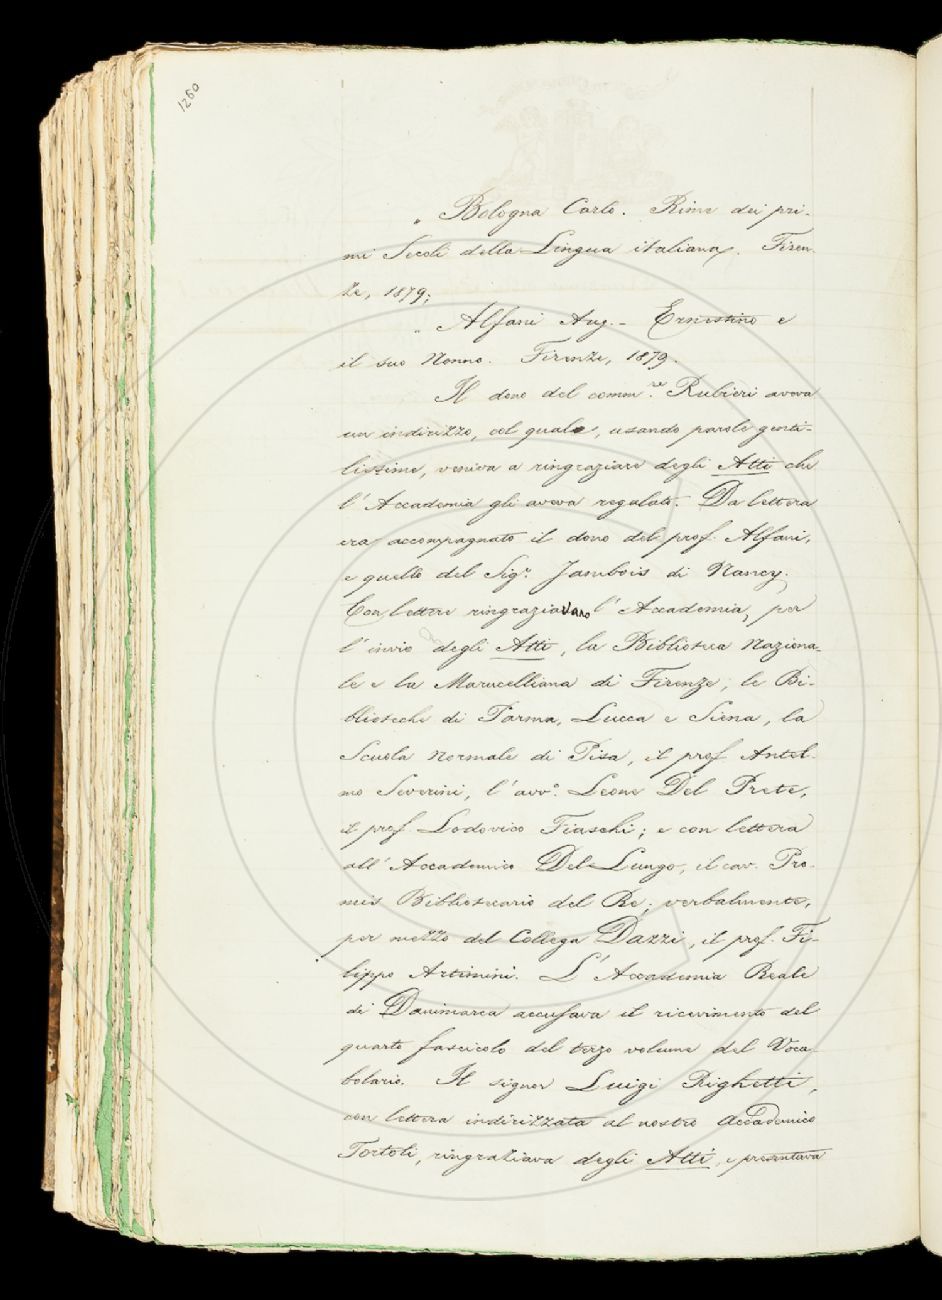 1260
„ Bologna Carlo. Rime dei pri-
mi Secoli della Lingua italiana. Firen-
ze, 1879;
„ Alfani Aug. - Ernestino e
il suo Nonno. Firenze, 1879.
Il dono del comm.re Rubieri aveva
un indirizzo, col quale, usando parole genti-
lissime, veniva a ringraziare degli Atti che
l'Accademia gli aveva regalato. Da lettera
era accompagnato il dono del prof. Alfani,
e quello del Sigr. Jambois di Nancy.
Con lettere ringraziavano l'Accademia, per
l'invio degli Atti, la Biblioteca Naziona-
le e la Marucelliana di Firenze; le Bi-
blioteche di Parma, Lucca e Siena, la
Scuola normale di Pisa, il prof. Antel-
mo Severini, l'avv.o Leone Del Prete,
il prof Lodovico Fiaschi; e con lettera
all'Accademico Del Lungo, il cav. Pro-
mis Bibliotecario del Re; verbalmente,
per mezzo del Collega Dazzi, il prof. Fi-
lippo Artimini. L'Accademia Reale
di Danimarca accusava il ricevimento del
quarto fascicolo del terzo volume del Voca-
bolario. Il signor Luigi Righetti,
con lettera indirizzata al nostro Accademico
Tortoli, ringraziava degli Atti, e presentava